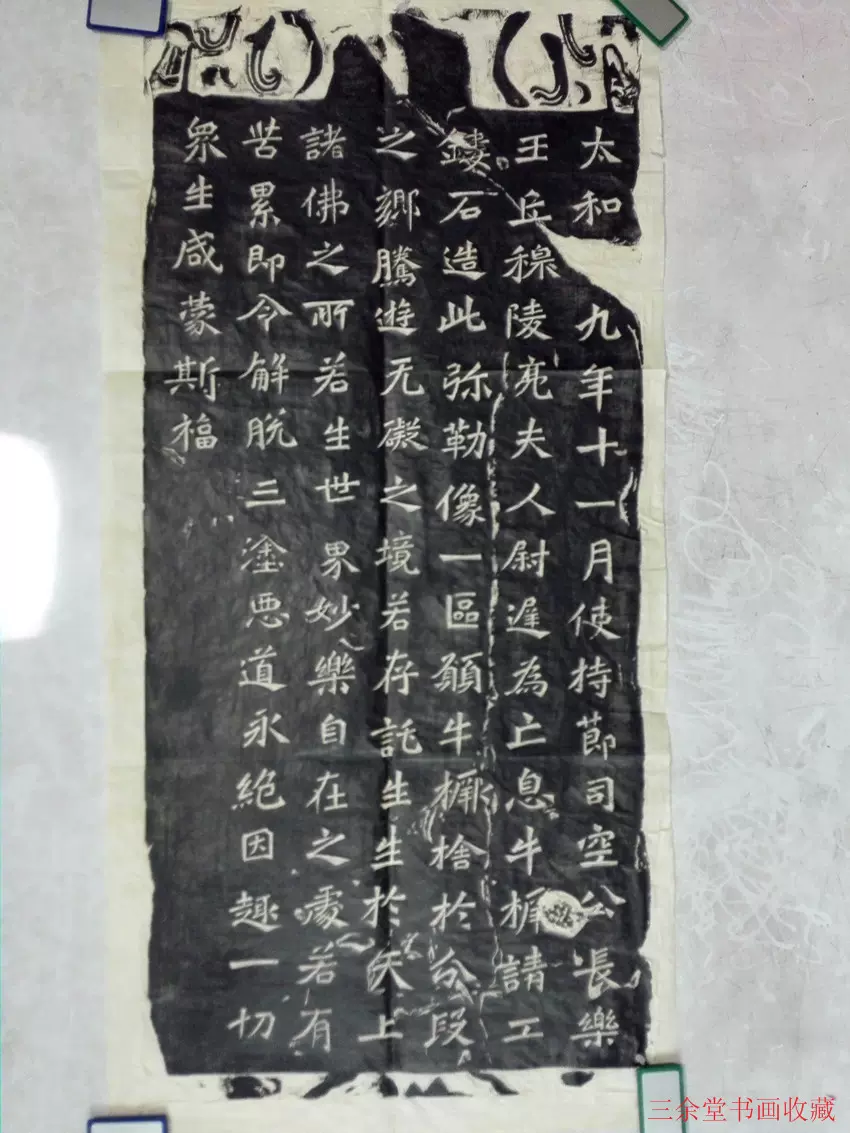 太和九年十一月使持節司空公長樂
王丘穆陵亮夫人尉遲為亡息牛橛請工
鏤石造此弥勒像一區願牛橛捨於分段
之鄉騰遊无礙之境若存託生生於天上
諸佛之所若生世界妙樂自在之處若有
苦累即令解脫三塗恶道永絕因趣一切
眾生咸蒙斯福
三余堂书画收藏